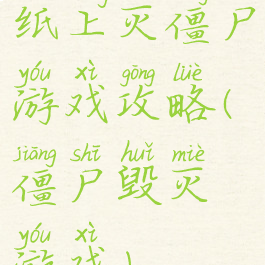 纸上灭僵尸
yóu xì gōng lüè
游戏攻略(
jiāng shī huǐ miè
僵尸毁灭
yóu xì
游戏)